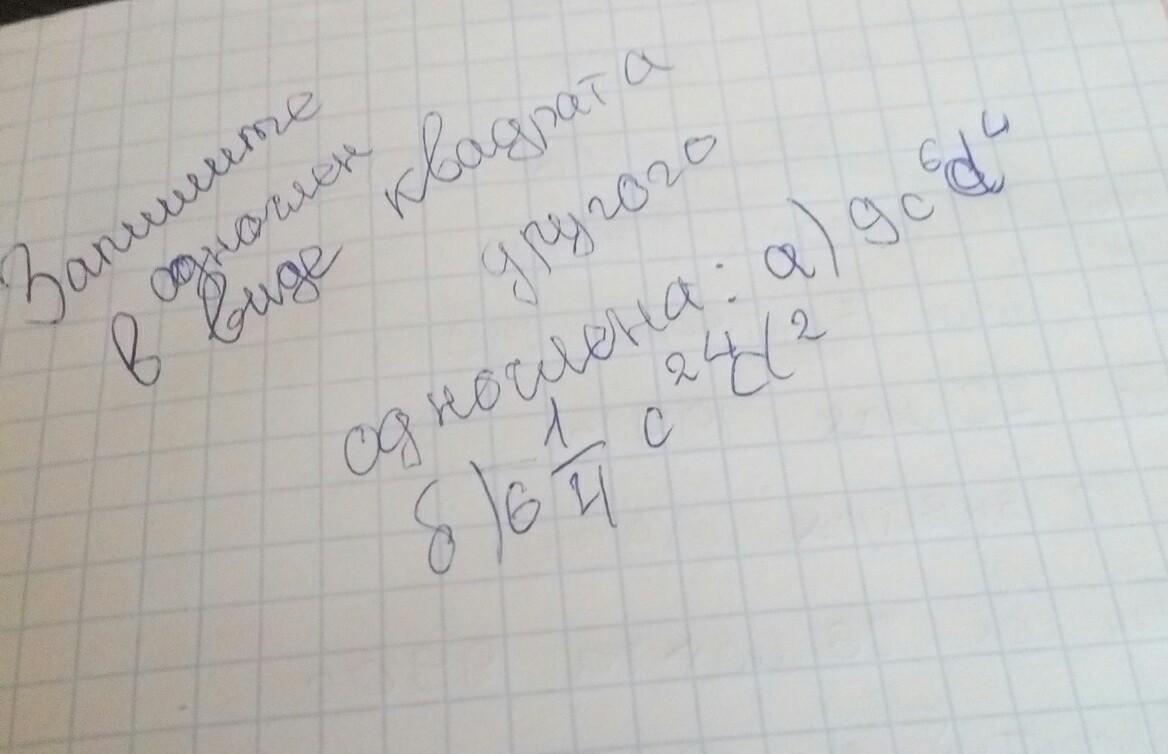 Запишите
одночлен квадрата
в виде другого
одночлена: а) 9c⁶d⁴
б) 6 1/4 c²⁴d²